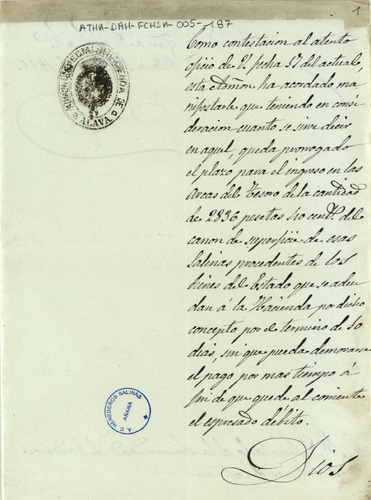 ATHA-DAH-FCHSA-005-187
1
Como contestacion al atento
oficio de V. fecha 17 del actual,
esta Admon ha acordado ma
nifestarle que teniendo en consi
deracion cuanto se sirve decir
en aquel, queda prorrogado
el plazo para el ingreso en las
Arcas del Tesoro de la cantidad
de 2836 pesetas 40 cent. del
canon de superficie de esas
Salinas procedentes de los
bienes del Estado que se adeu
dan á la Hacienda por dicho
concepto por el termino de
dias, sin que pueda demorarse
el pago por mas tiempo á
fin de que quede al corriente
el expresado debito.
Dios
ESPECIAL DE HACIENDA DE
ALAVA
A.C. HEREDEROS SALINAS
AÑANA